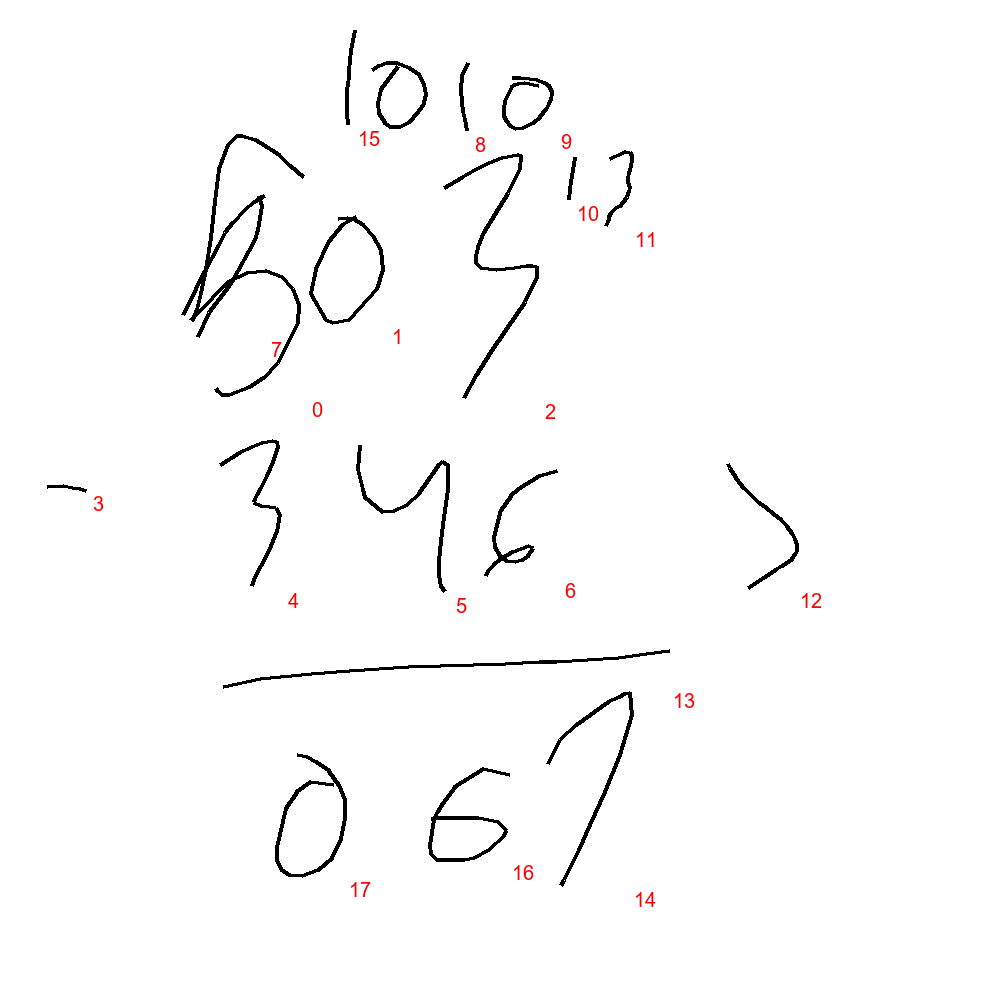 10 10
15 8 9
13
10 11
503
7 1
0 2
- 346 >
3
4 5 6 12
13
067
17 16 14